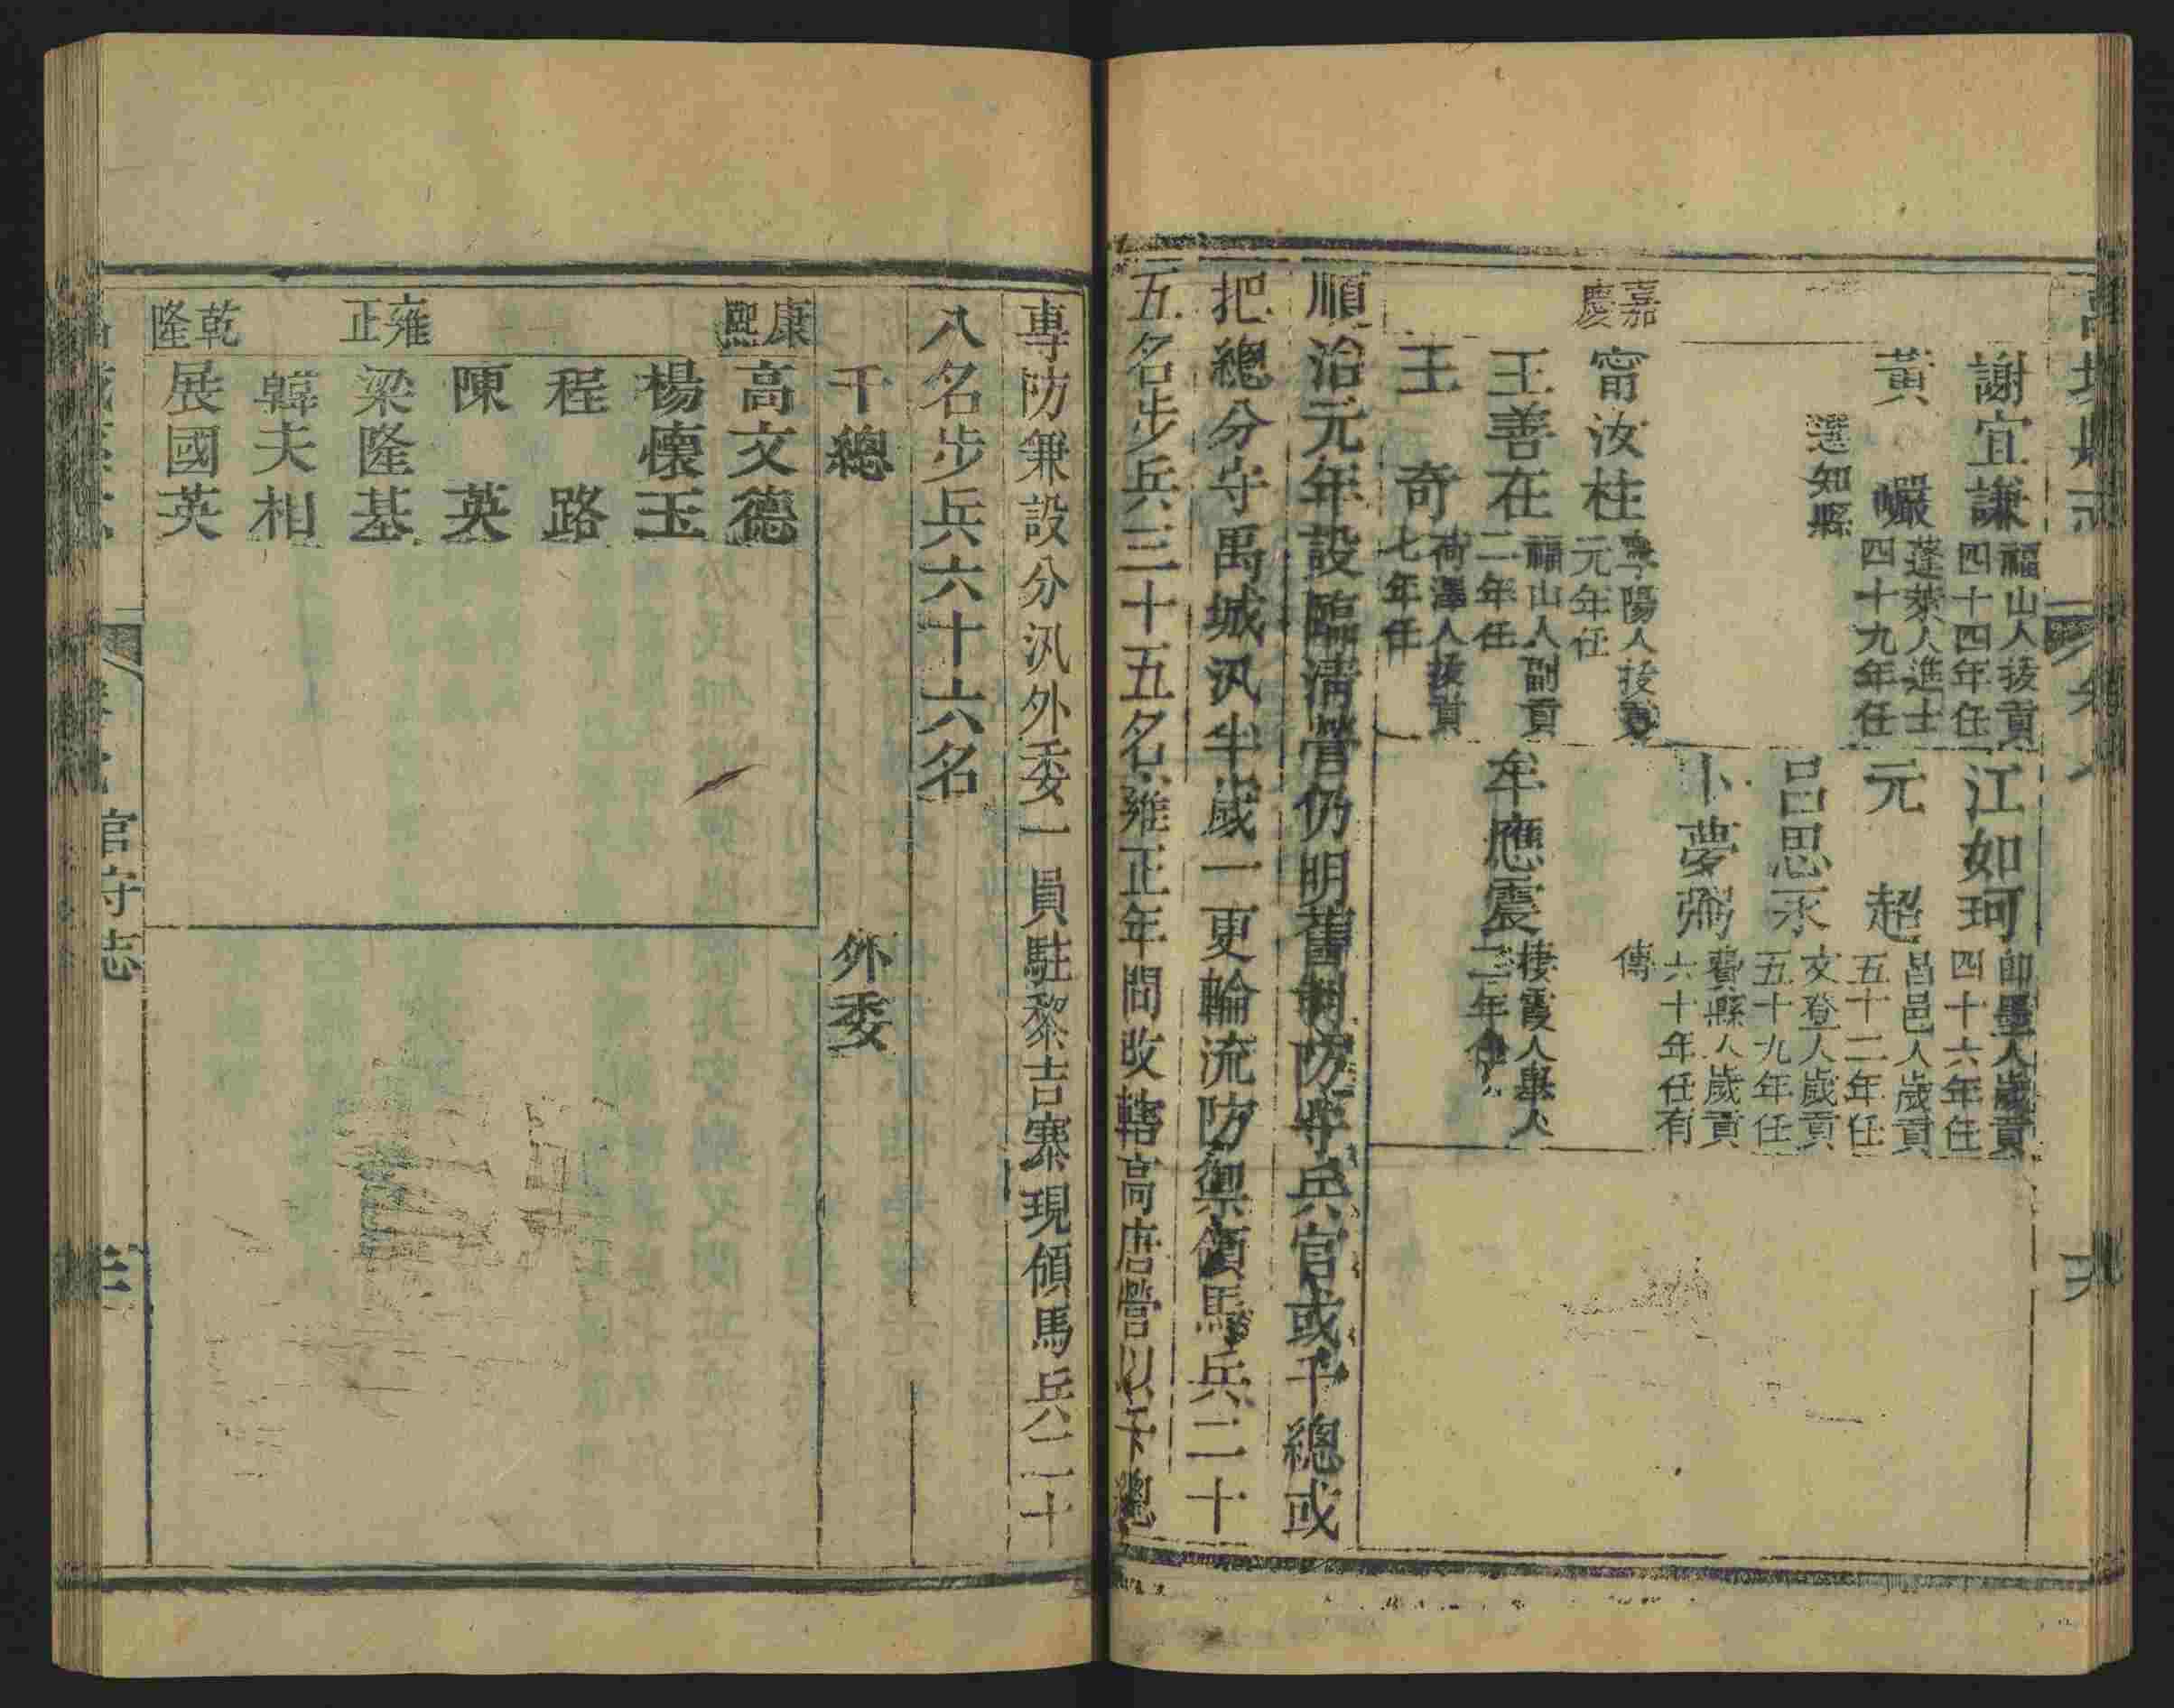 謝宜謙 福山人拔貢四十四年任
黃 巘 蓬萊人進士四十九年任
選知縣
嘉慶
甯汝柱 寧陽人拔貢元年任
王善在 福山人副貢二年任
王 奇 荷澤人拔貢七年任
江如珂 卽墨人歲貢四十六年任
元 超 昌邑人歲貢五十二年任
呂思永 文登人歲貢五十九年任
卜夢弼 費縣人歲貢六十年任有
傳
牟應震 棲霞人舉人二年任
順治元年設臨清營仍明舊制防守兵官或千總或
把總分守禹城汛半歲一更輪流防禦領馬兵二十
五名步兵三十五名雍正年間改轄高唐營以千總
專防兼設分汛外委一員駐黎吉寨現領馬兵二十
八名步兵六十六名
千總 外委
康熙
高文德
楊懷玉
程 路
陳 英
雍正
梁隆基
韓夫相
乾隆
展國英
官守志